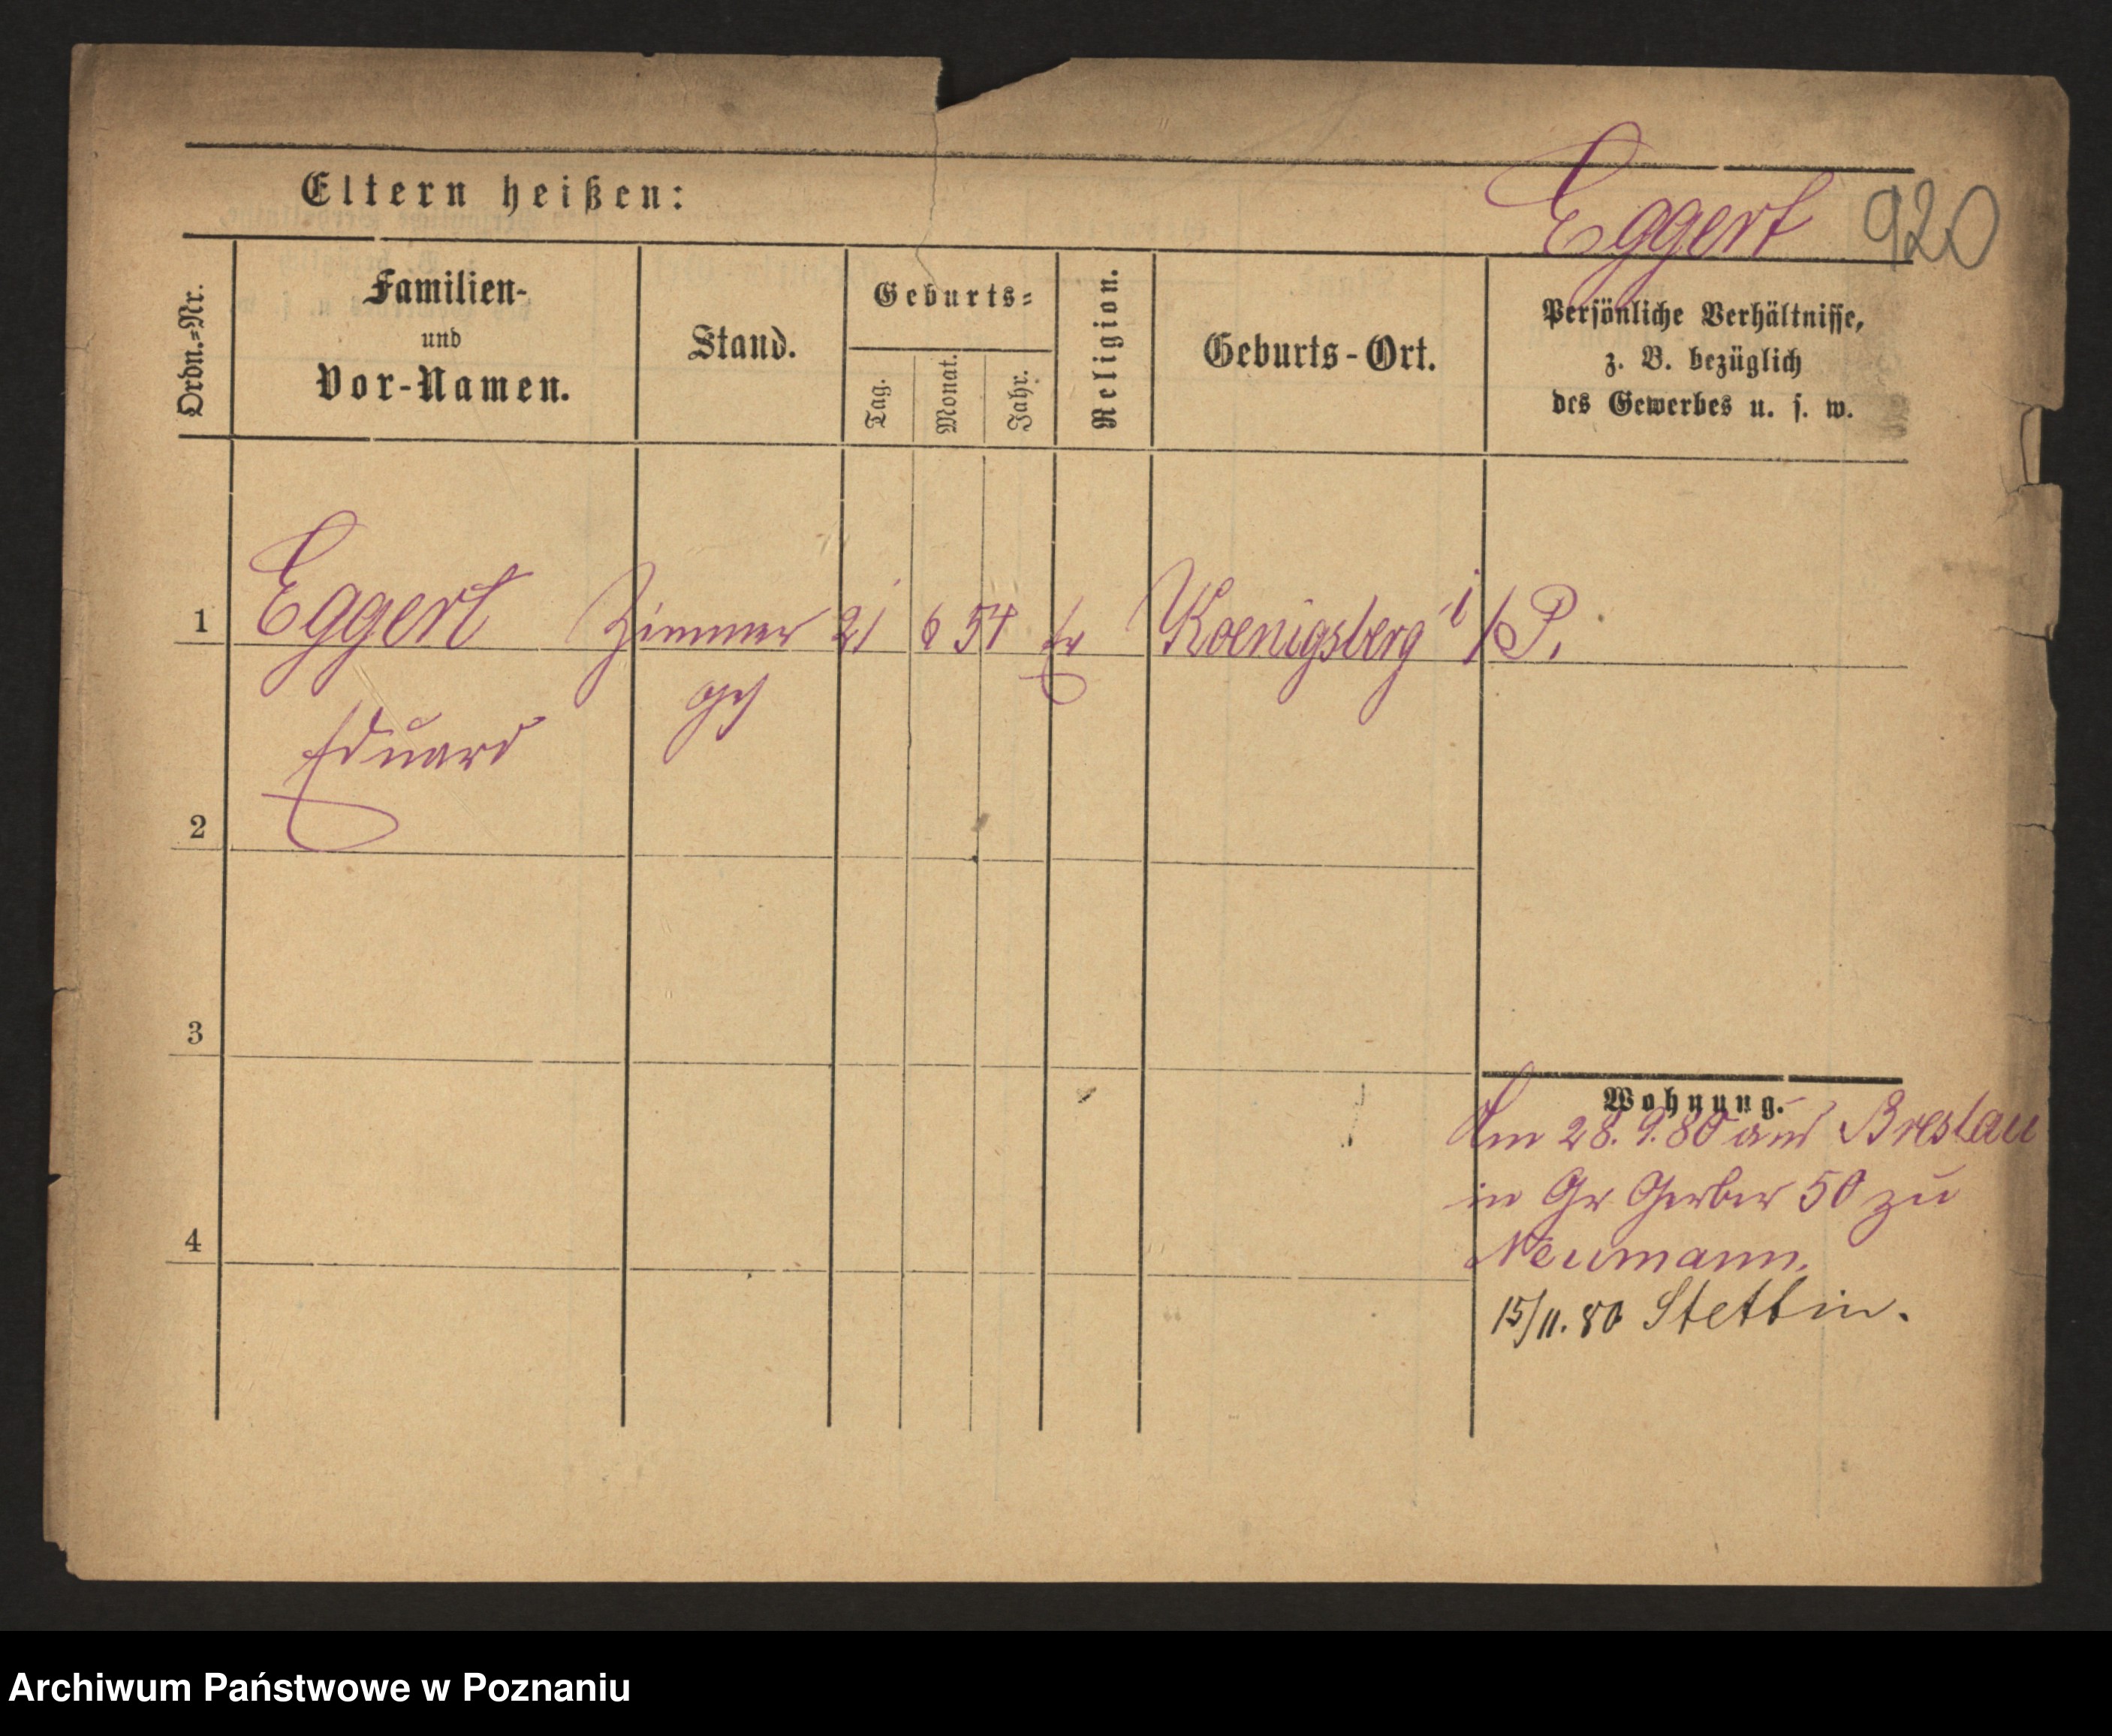 Eltern heißen:
Eggert 920
Ordn.=Nr.
Familien-
und
Vor-Namen.
Stand.
Geburts=
Tag.
Monat.
Jahr.
Religion.
Geburts-Ort.
Persönliche Verhältnisse,
z. B. bezüglich
des Gewerbes u. s. w.
1 Eggert Zimmer 21 6 54 Koenigsberg i/P.
Eduard
2
3
4
Wohnung.
Am 28.9.80 aus Breslau
in Gr Gerber 50 zu
Neumann.
15/11.80 Stettin.
Archiwum Państwowe w Poznaniu